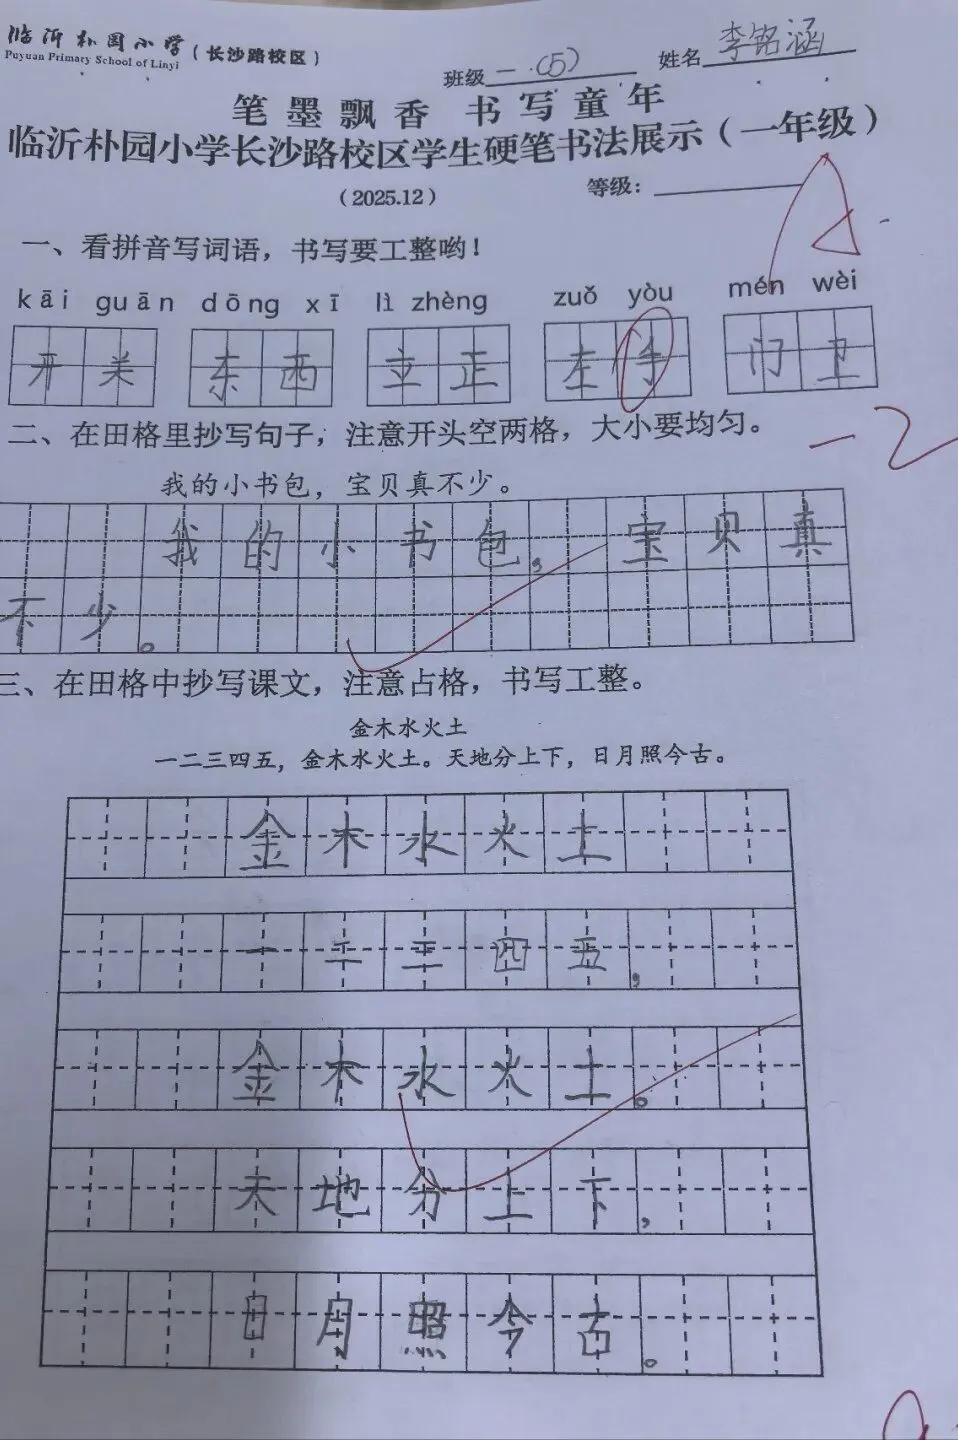 临沂朴园小学（长沙路校区）
Puyuan Primary School of Linyi
班级一.(5) 姓名李铭涵
笔墨飘香 书写童年
临沂朴园小学长沙路校区学生硬笔书法展示（一年级）
（2025.12） 等级：
A-
一、看拼音写词语，书写要工整哟！
kāi guān dōng xī lì zhèng zuǒ yòu mén wèi
开关 东西 立正 左手 门卫
-2
二、在田格里抄写句子，注意开头空两格，大小要均匀。
我的小书包，宝贝真不少。
我的小书包，宝贝真
不少。
三、在田格中抄写课文，注意占格，书写工整。
金木水火土
一二三四五，金木水火土。天地分上下，日月照今古。
金木水火土
一二三四五，
金木水火土。
天地分上下，
日月照今古。